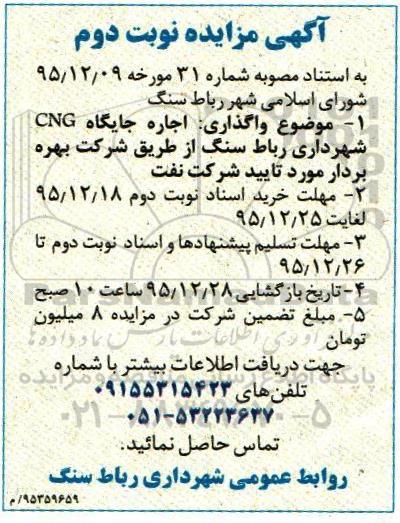 آگهی مزایده نوبت دوم
به استناد مصوبه شماره ۳۱ مورخه ۹۵/۱۲/۰۹
شورای اسلامی شهر رباط سنگ
۱- موضوع واگذاری: اجاره جایگاه CNG
شهرداری رباط سنگ از طریق شرکت بهره
بردار مورد تایید شرکت نفت
۲- مهلت خرید اسناد نوبت دوم ۹۵/۱۲/۱۸
لغایت ۹۵/۱۲/۲۵
۳- مهلت تسلیم پیشنهادها و اسناد نوبت دوم تا
۹۵/۱۲/۲۶
۴- تاریخ بازگشایی ۹۵/۱۲/۲۸ ساعت ۱۰ صبح
۵- مبلغ تضمین شرکت در مزایده ۸ میلیون
تومان
جهت دریافت اطلاعات بیشتر با شماره
تلفن‌های ۰۹۱۵۵۳۱۵۴۲۳
۰۵۱-۵۳۲۲۳۶۳۷
تماس حاصل نمائید.
روابط عمومی شهرداری رباط سنگ
۹۵۳۵۹۶۵۹/م